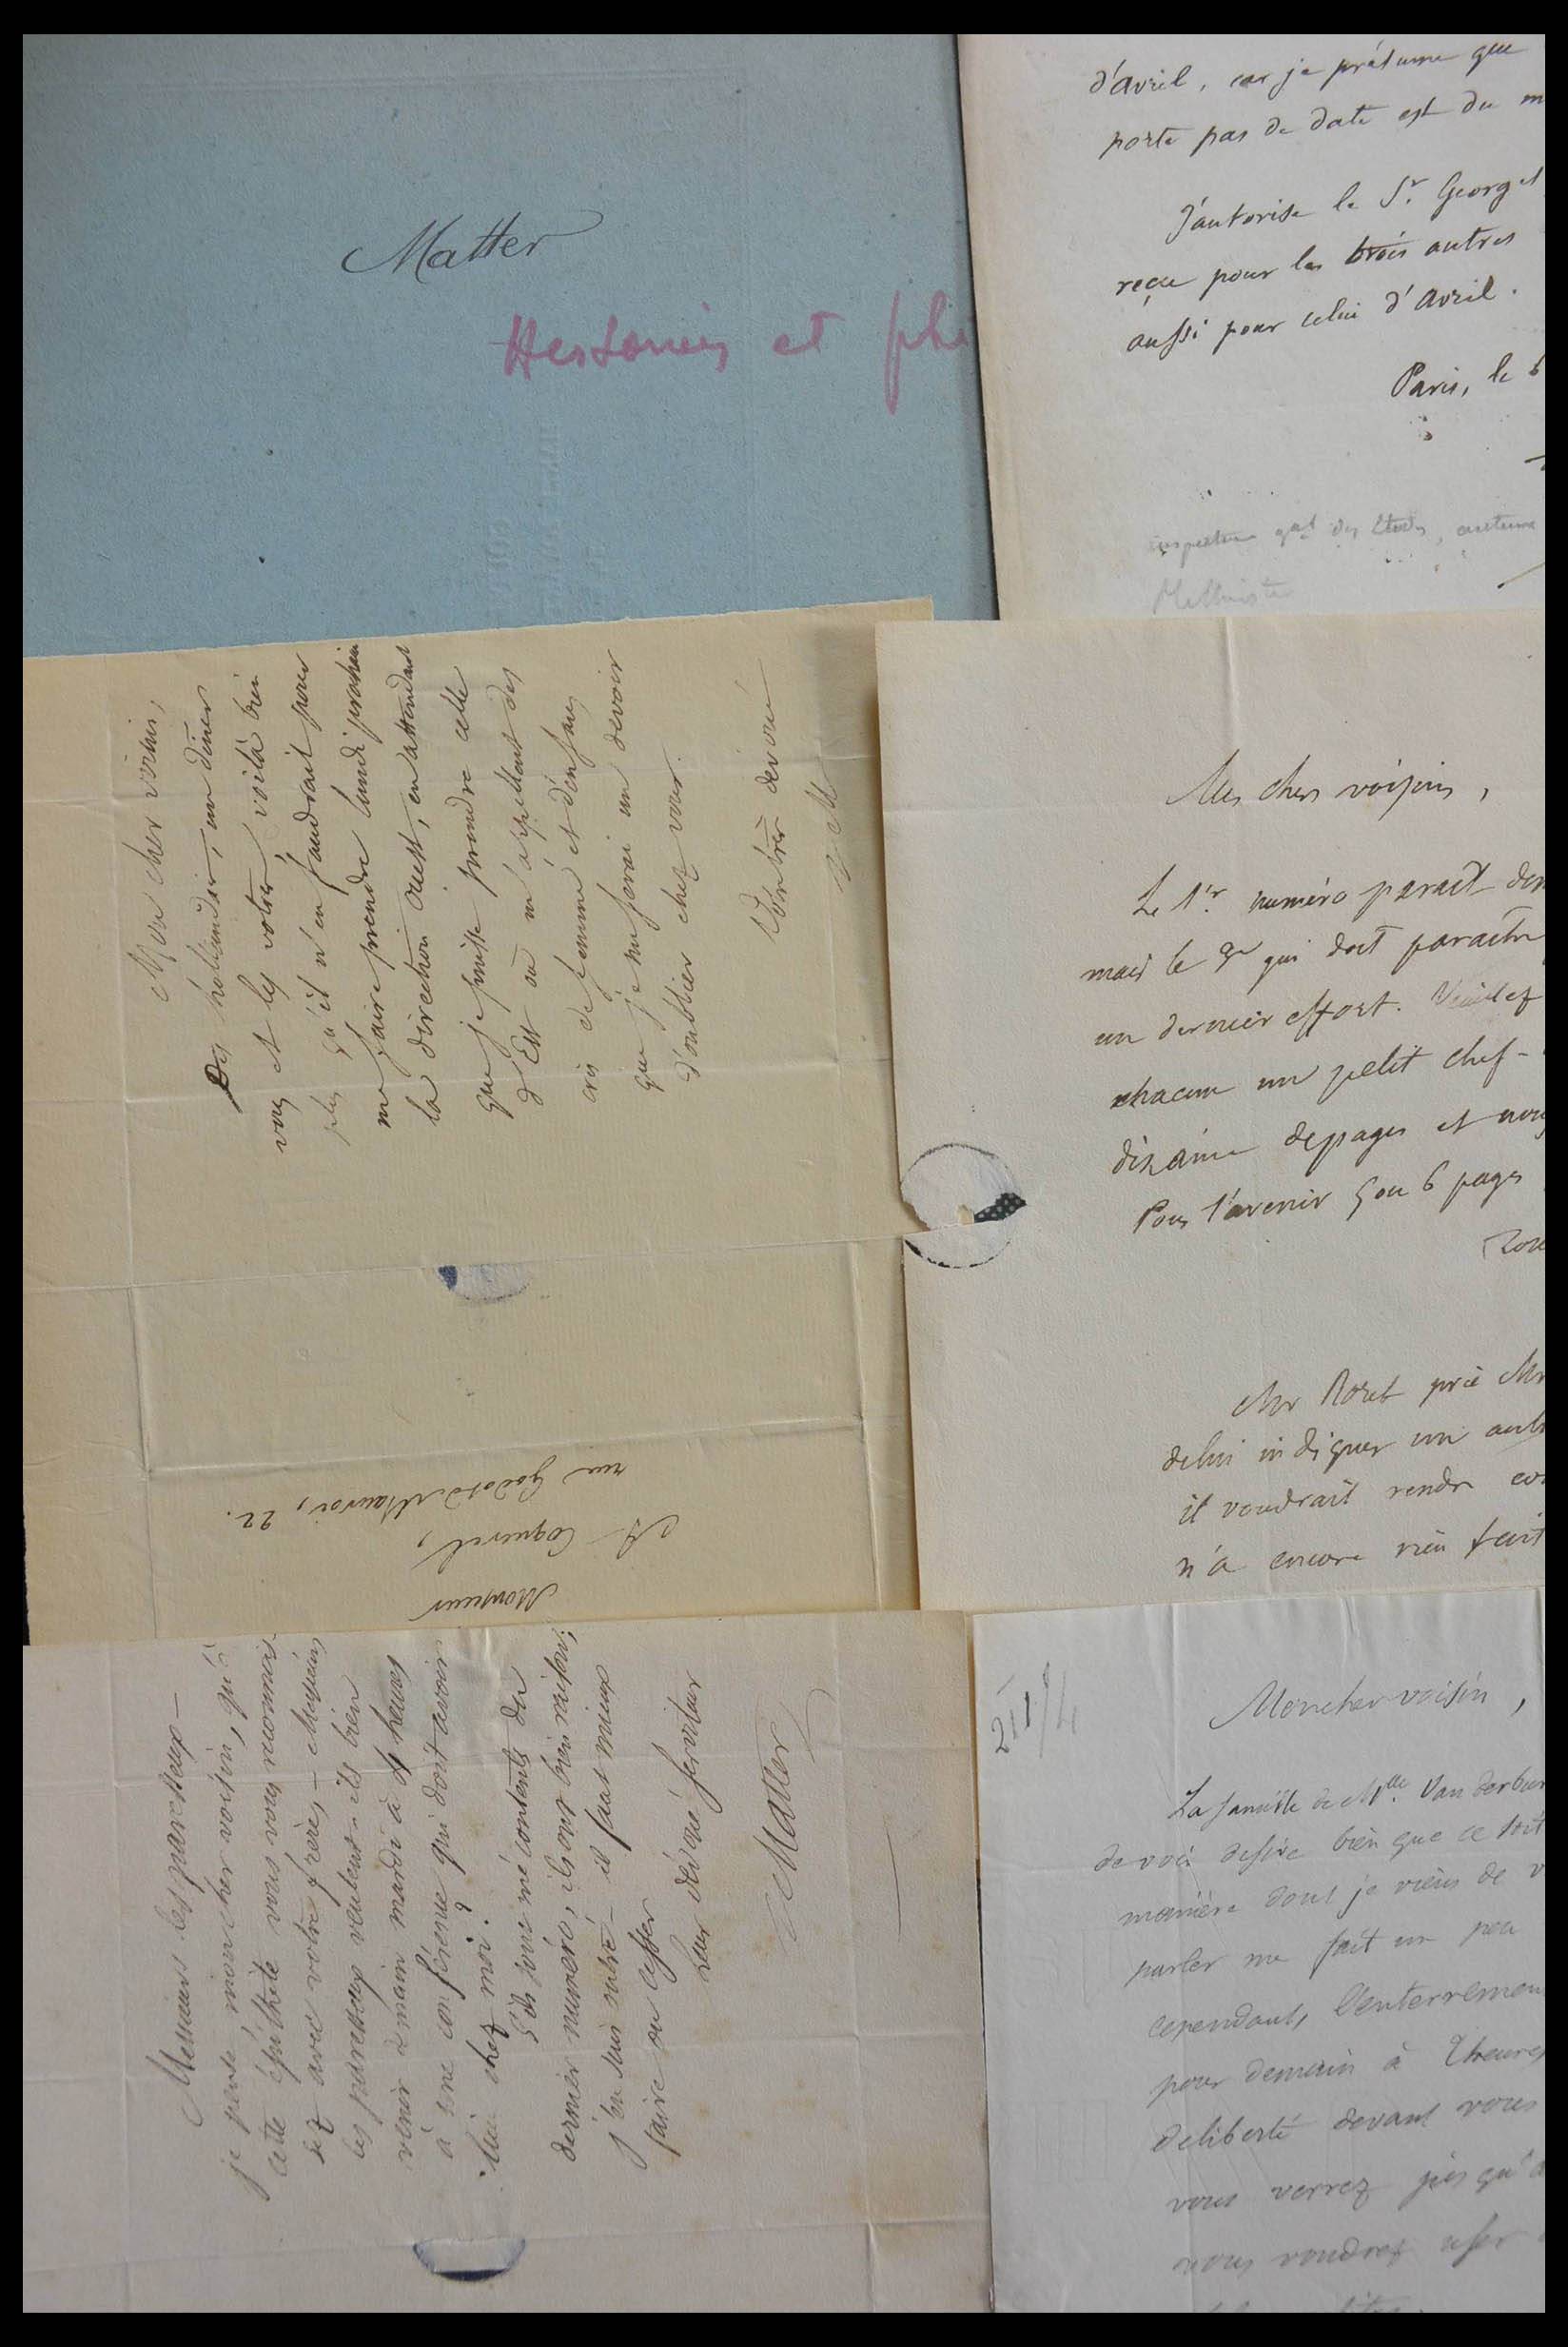 Matter
et
d'avril, car je présume que
porte pas de date est du
J'autorise le Sr. Georget
reçu pour les trois autres
aussi pour celui d'Avril.
Paris, le 6
gal des Etudes,
Mon cher voisin,
Des hollandais, un diner
vous et les votres, voilà bien
plus qu'il n'en faudrait pour
me faire prendre lundi prochain
la direction ouest, en attendant
que je puisse prendre celle
d'Est où m'appellent des
cris de femme et d'enfans
que je me ferai un devoir
d'oublier chez vous.
Votre très dévoué
M
Monsieur
A Coquerel,
rue Godot de Mauroi, 22.
Mes chers voisins,
Le 1er. numéro paraît
mais le 2e qui doit paraître
un dernier effort. Veuillez
chacun un petit chef-
dixaine de pages et
Pour l'avenir 5 ou 6 pages
Mr Roret prie Mr
de lui indiquer un
il voudrait rendre
n'a encore rien fait
Messieurs les paresseux —
je pense, mon cher voisin, qu'à
cette épithète vous vous reconnais-
sez avec votre frère, — Messieurs
les paresseux veulent-ils bien
venir demain mardi à heures
à une conférence qui doit avoir
lieu chez moi?
S'ils sont mécontents du
dernier numéro, ils ont bien raison;
j'en suis outré — il faut mieux
faire ou cesser
Leur dévoué serviteur
Matter
Mon cher voisin,
La famille de Mlle. Van
de voir desire bien que ce soit
manière dont je viens de
parler me fait un peu
cependant, l'enterrement
pour demain à heures
de liberté devant vous
vous verrez jusqu'à
vous voudrez user